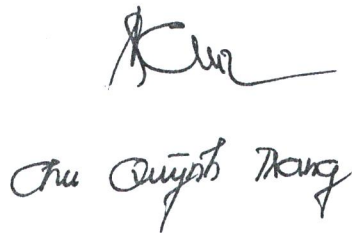 Chu Quỳnh Trang